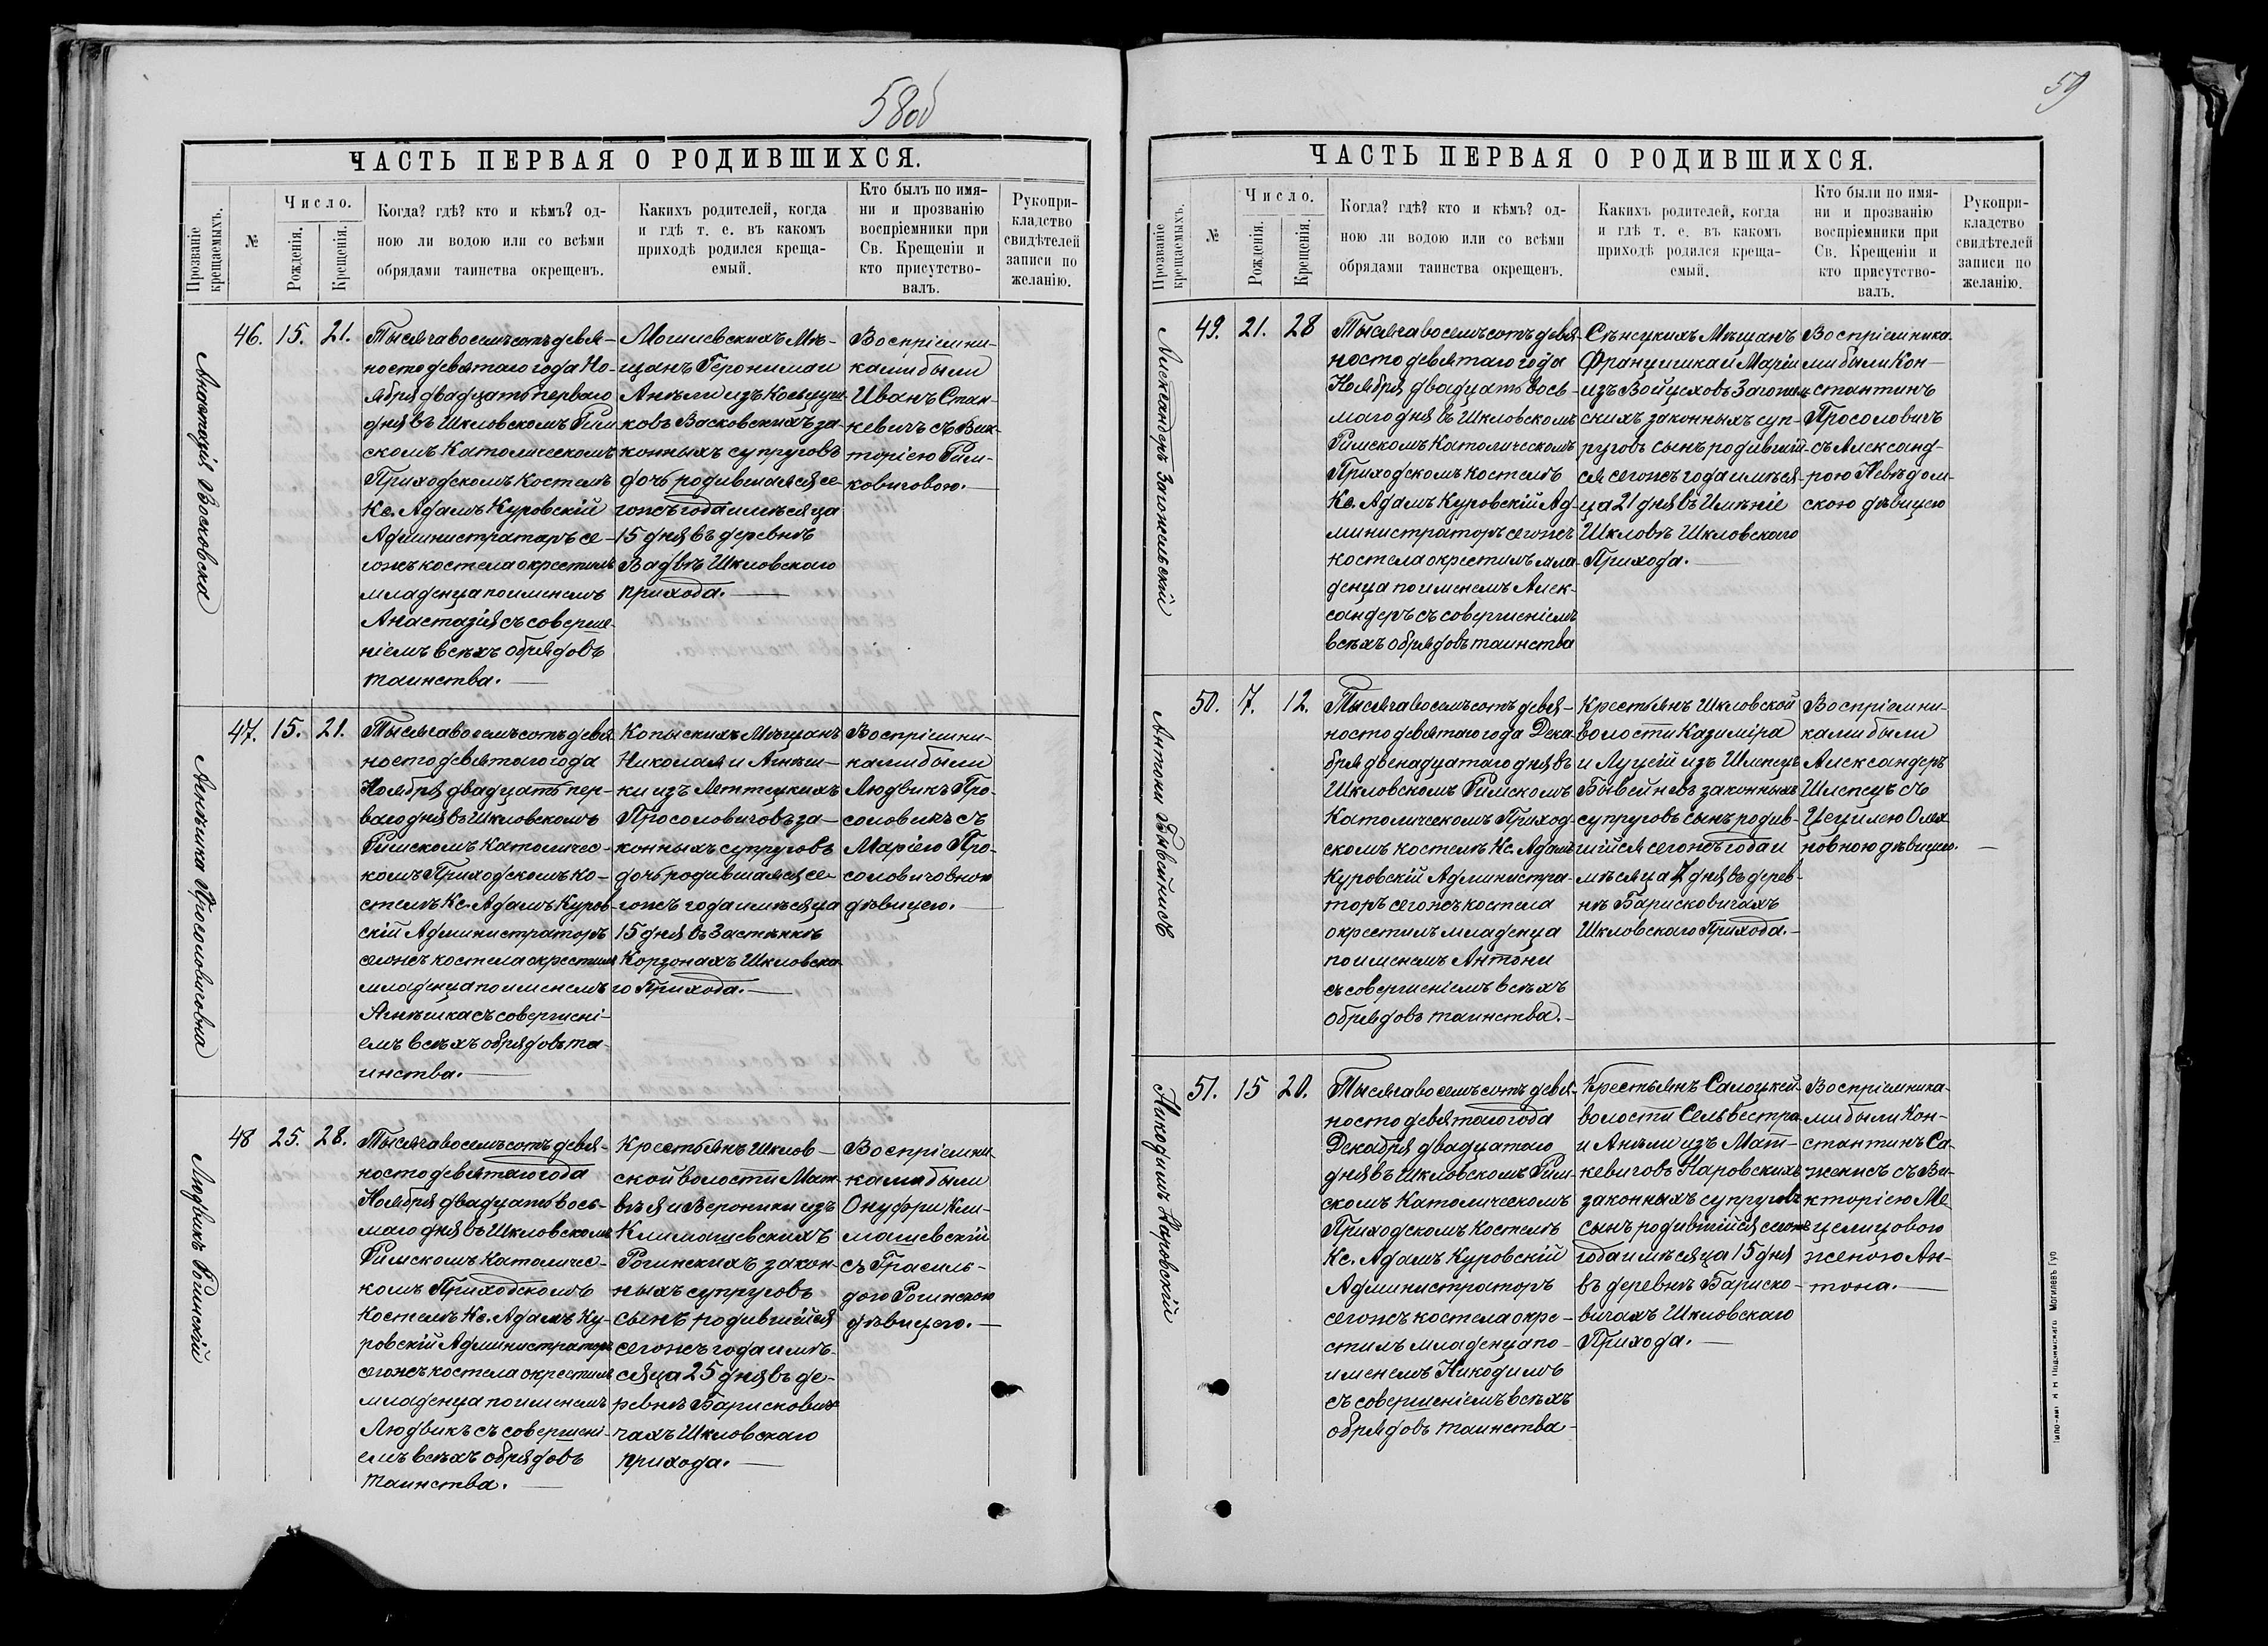 58об
ЧАСТЬ ПЕРВАЯ О РОДИВШИХСЯ.
Прозваніе крещаемыхъ.
№
Число.
Рожденія.
Крещенія.
Когда? гдѣ? кто и кѣмъ? од-
ною ли водою или со всѣми
обрядами таинства окрещенъ.
Какихъ родителей, когда
и гдѣ т. е. въ какомъ
приходѣ родился креща-
емый.
Кто былъ по имя-
ни и прозванію
воспріемники при
Св. Крещеніи и
кто присутство-
валъ.
Рукопри-
кладство
свидѣтелей
записи по
желанію.
Анастазія Восковска
46. 15. 21.
Тысяча восемьсотъ девя-
носто девятаго года Но-
ября двадцать перваго
дня въ Шкловскомъ Рим-
скомъ Католическомъ
Приходскомъ Костелѣ
Кс. Адамъ Куровскій
Администраторъ се-
гожъ костела окрестилъ
младенца по именемъ
Анастазія съ соверше-
ніемъ всѣхъ обрядовъ
таинства.
Могилевскихъ Мѣ-
щанъ Геронима и
Анѣли изъ
ковъ Васковскихъ за-
конныхъ супруговъ
дочь родившаяся се-
гожъ года и мѣсяца
15 дня въ деревнѣ
Вадвѣ Шкловскаго
прихода.
Воспріемни-
ками были
Иванъ Стан-
кевичъ съ Вик-
торіею Рим-
ковичовою.
Агнѣшка Просоловичовна
47. 15. 21.
Тысяча восемьсотъ девя
носто девятаго года
Ноября двадцать пер-
ваго дня въ Шкловскомъ
Римскомъ Католичес-
комъ Приходскомъ Ко-
стелѣ Кс. Адамъ Куров-
скій Администраторъ
сегожъ костела окрестилъ
младенца по именемъ
Агнѣшка съ совершені-
емъ всѣхъ обрядовъ та-
инства.
Копыскихъ Мѣщанъ
Николая и Агнѣш-
ки изъ Леттецкихъ
Просоловичовъ за-
конныхъ супруговъ
дочь родившаяся се-
гожъ года и мѣсяца
15 дня въ Застѣнкѣ
Кордонахъ Шкловска-
го Прихода.
Воспріемни-
ками были
Людвикъ Про-
соловичъ съ
Маріею Про-
соловичовною
дѣвицею.
Людвикъ Рогинскій
48 25. 28.
Тысяча восемьсотъ девя-
носто девятаго года
Ноября двадцать вось-
маго дня въ Шкловскомъ
Римскомъ Католичес-
комъ Приходскомъ
Костелѣ Кс. Адамъ Ку-
ровскій Администраторъ
сегожъ костела окрестилъ
младенца по именемъ
Людвикъ съ совершені-
емъ всѣхъ обрядовъ
таинства.
Крестьянъ Шклов-
ской волости Мат-
вѣя и Вероники изъ
Климашевскихъ
Рогинскихъ закон-
ныхъ супруговъ
сынъ родившійся
сегожъ года и мѣ-
сяца 25 дня въ де-
ревнѣ Барискови-
чахъ Шкловскаго
прихода.
Воспріемни-
ками были
Онуфри Кли-
машевскій
съ Грасиль-
дою Рогинскою
дѣвицею.
59
ЧАСТЬ ПЕРВАЯ О РОДИВШИХСЯ.
Прозваніе крещаемыхъ.
№
Число.
Рожденія.
Крещенія.
Когда? гдѣ? кто и кѣмъ? од-
ною ли водою или со всѣми
обрядами таинства окрещенъ.
Какихъ родителей, когда
и гдѣ т. е. въ какомъ
приходѣ родился креща-
емый.
Кто были по имя-
ни и прозванію
воспріемники при
Св. Крещеніи и
кто присутство-
валъ.
Рукопри-
кладство
свидѣтелей
записи по
желанію.
Александеръ Загожельскій
49. 21. 28
Тысяча восемьсотъ девя-
носто девятаго года
Ноября двадцать вось-
маго дня въ Шкловскомъ
Римскомъ Католическомъ
Приходскомъ костелѣ
Кс. Адамъ Куровскій Ад-
министраторъ сегожъ
костела окрестилъ мла-
денца по именемъ Алек-
сандеръ съ совершеніемъ
всѣхъ обрядовъ таинства
Сѣнецкихъ Мѣщанъ
Францишка и Маріи
изъ Войцеховъ Загожель-
скихъ законныхъ суп-
руговъ сынъ родившій-
ся сегожъ года и мѣся-
ца 21 дня въ Имѣніе
Шкловѣ Шкловскаго
Прихода.
Воспріемника-
ми были Кон-
стантинъ
Просоловичъ
съ Александ-
рою Невѣдом-
скою дѣвицею
Антони Бывейнисъ
50. 7. 12.
Тысяча восемьсотъ девя-
носто девятаго года Дека-
бря двенадцатаго дня въ
Шкловскомъ Римскомъ
Католическомъ Приход-
скомъ костелѣ Кс. Адамъ
Куровскій Администра-
торъ сегожъ костела
окрестилъ младенца
по именемъ Антони
съ совершеніемъ всѣхъ
обрядовъ таинства.
Крестьянъ Шкловской
волости Казиміра
и Луціи изъ Шлепцъ
Бывейнисъ законныхъ
супруговъ сынъ родив-
шійся сегожъ года и
мѣсяца 7 дня въ дерев-
нѣ Барисковичахъ
Шкловскаго Прихода.
Воспріемни-
ками были
Александеръ
Шлепецъ съ
Цецилею Олех
новною дѣвицею.
Никодимъ Наровскій
51. 15 20.
Тысяча восемьсотъ девя-
носто девятаго года
Декабря двадцатаго
дня въ Шкловскомъ Рим-
скомъ Католическомъ
Приходскомъ Костелѣ
Кс. Адамъ Куровскій
Администраторъ
сегожъ костела окре-
стилъ младенца по-
именемъ Никодимъ
съ совершеніемъ всѣхъ
обрядовъ таинства
Крестьянъ Салоцкей
волости Сельвестра
и Анѣли изъ Мат-
кевичовъ Наровскихъ
законныхъ супруговъ
сынъ родившійся сегожъ
года и мѣсяца 15 дня
въ деревнѣ Бариско-
вичахъ Шкловскаго
Прихода.
Воспріемника-
ми были Кон-
стантинъ Са-
женисъ съ Ви-
кторіею Ме-
целицовою
женою Ан-
тона.